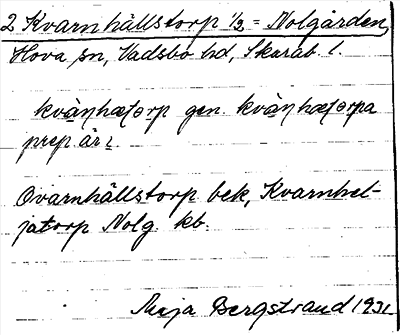 2 Kvarnhällstorp 1/2 = Nolgården,
Hova sn, Vadsbo hd, Skarab. l.
kvàn̩hæʃɔrp gen. kvàn̩hæʃɔrpa
prep. är i.
Qvarnhällstorp bek, Kvarnhel-
jatorp Nolg. kb.
Maja Bergstrand 1931